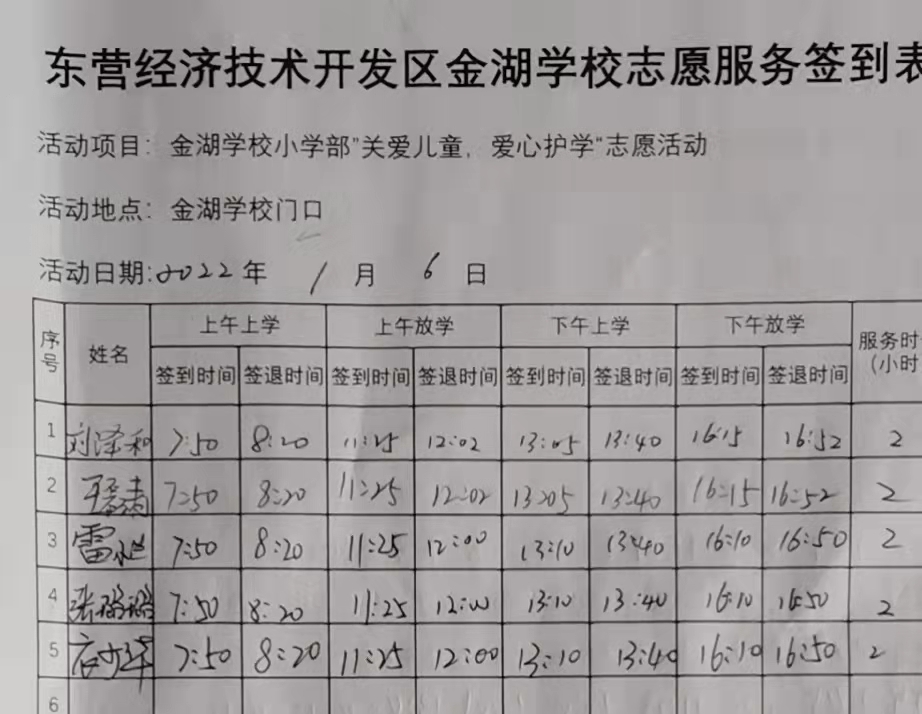 东营经济技术开发区金湖学校志愿服务签到表
活动项目：金湖学校小学部"关爱儿童，爱心护学"志愿活动
活动地点：金湖学校门口
活动日期:2022年 1 月 6 日
序号 姓名 上午上学 上午放学 下午上学 下午放学 服务时 (小时
签到时间 签退时间 签到时间 签退时间 签到时间 签退时间 签到时间 签退时间
1 刘泽和 7:50 8:20 11:25 12:02 13:05 13:40 16:15 16:52 2
2 7:50 8:20 11:25 12:02 13:05 13:40 16:15 16:52 2
3 雷 7:50 8:20 11:25 12:00 13:10 13:40 16:10 16:50 2
4 张 7:50 8:20 11:25 12:00 13:10 13:40 16:10 16:50 2
5 7:50 8:20 11:25 12:00 13:10 13:40 16:10 16:50 2
6